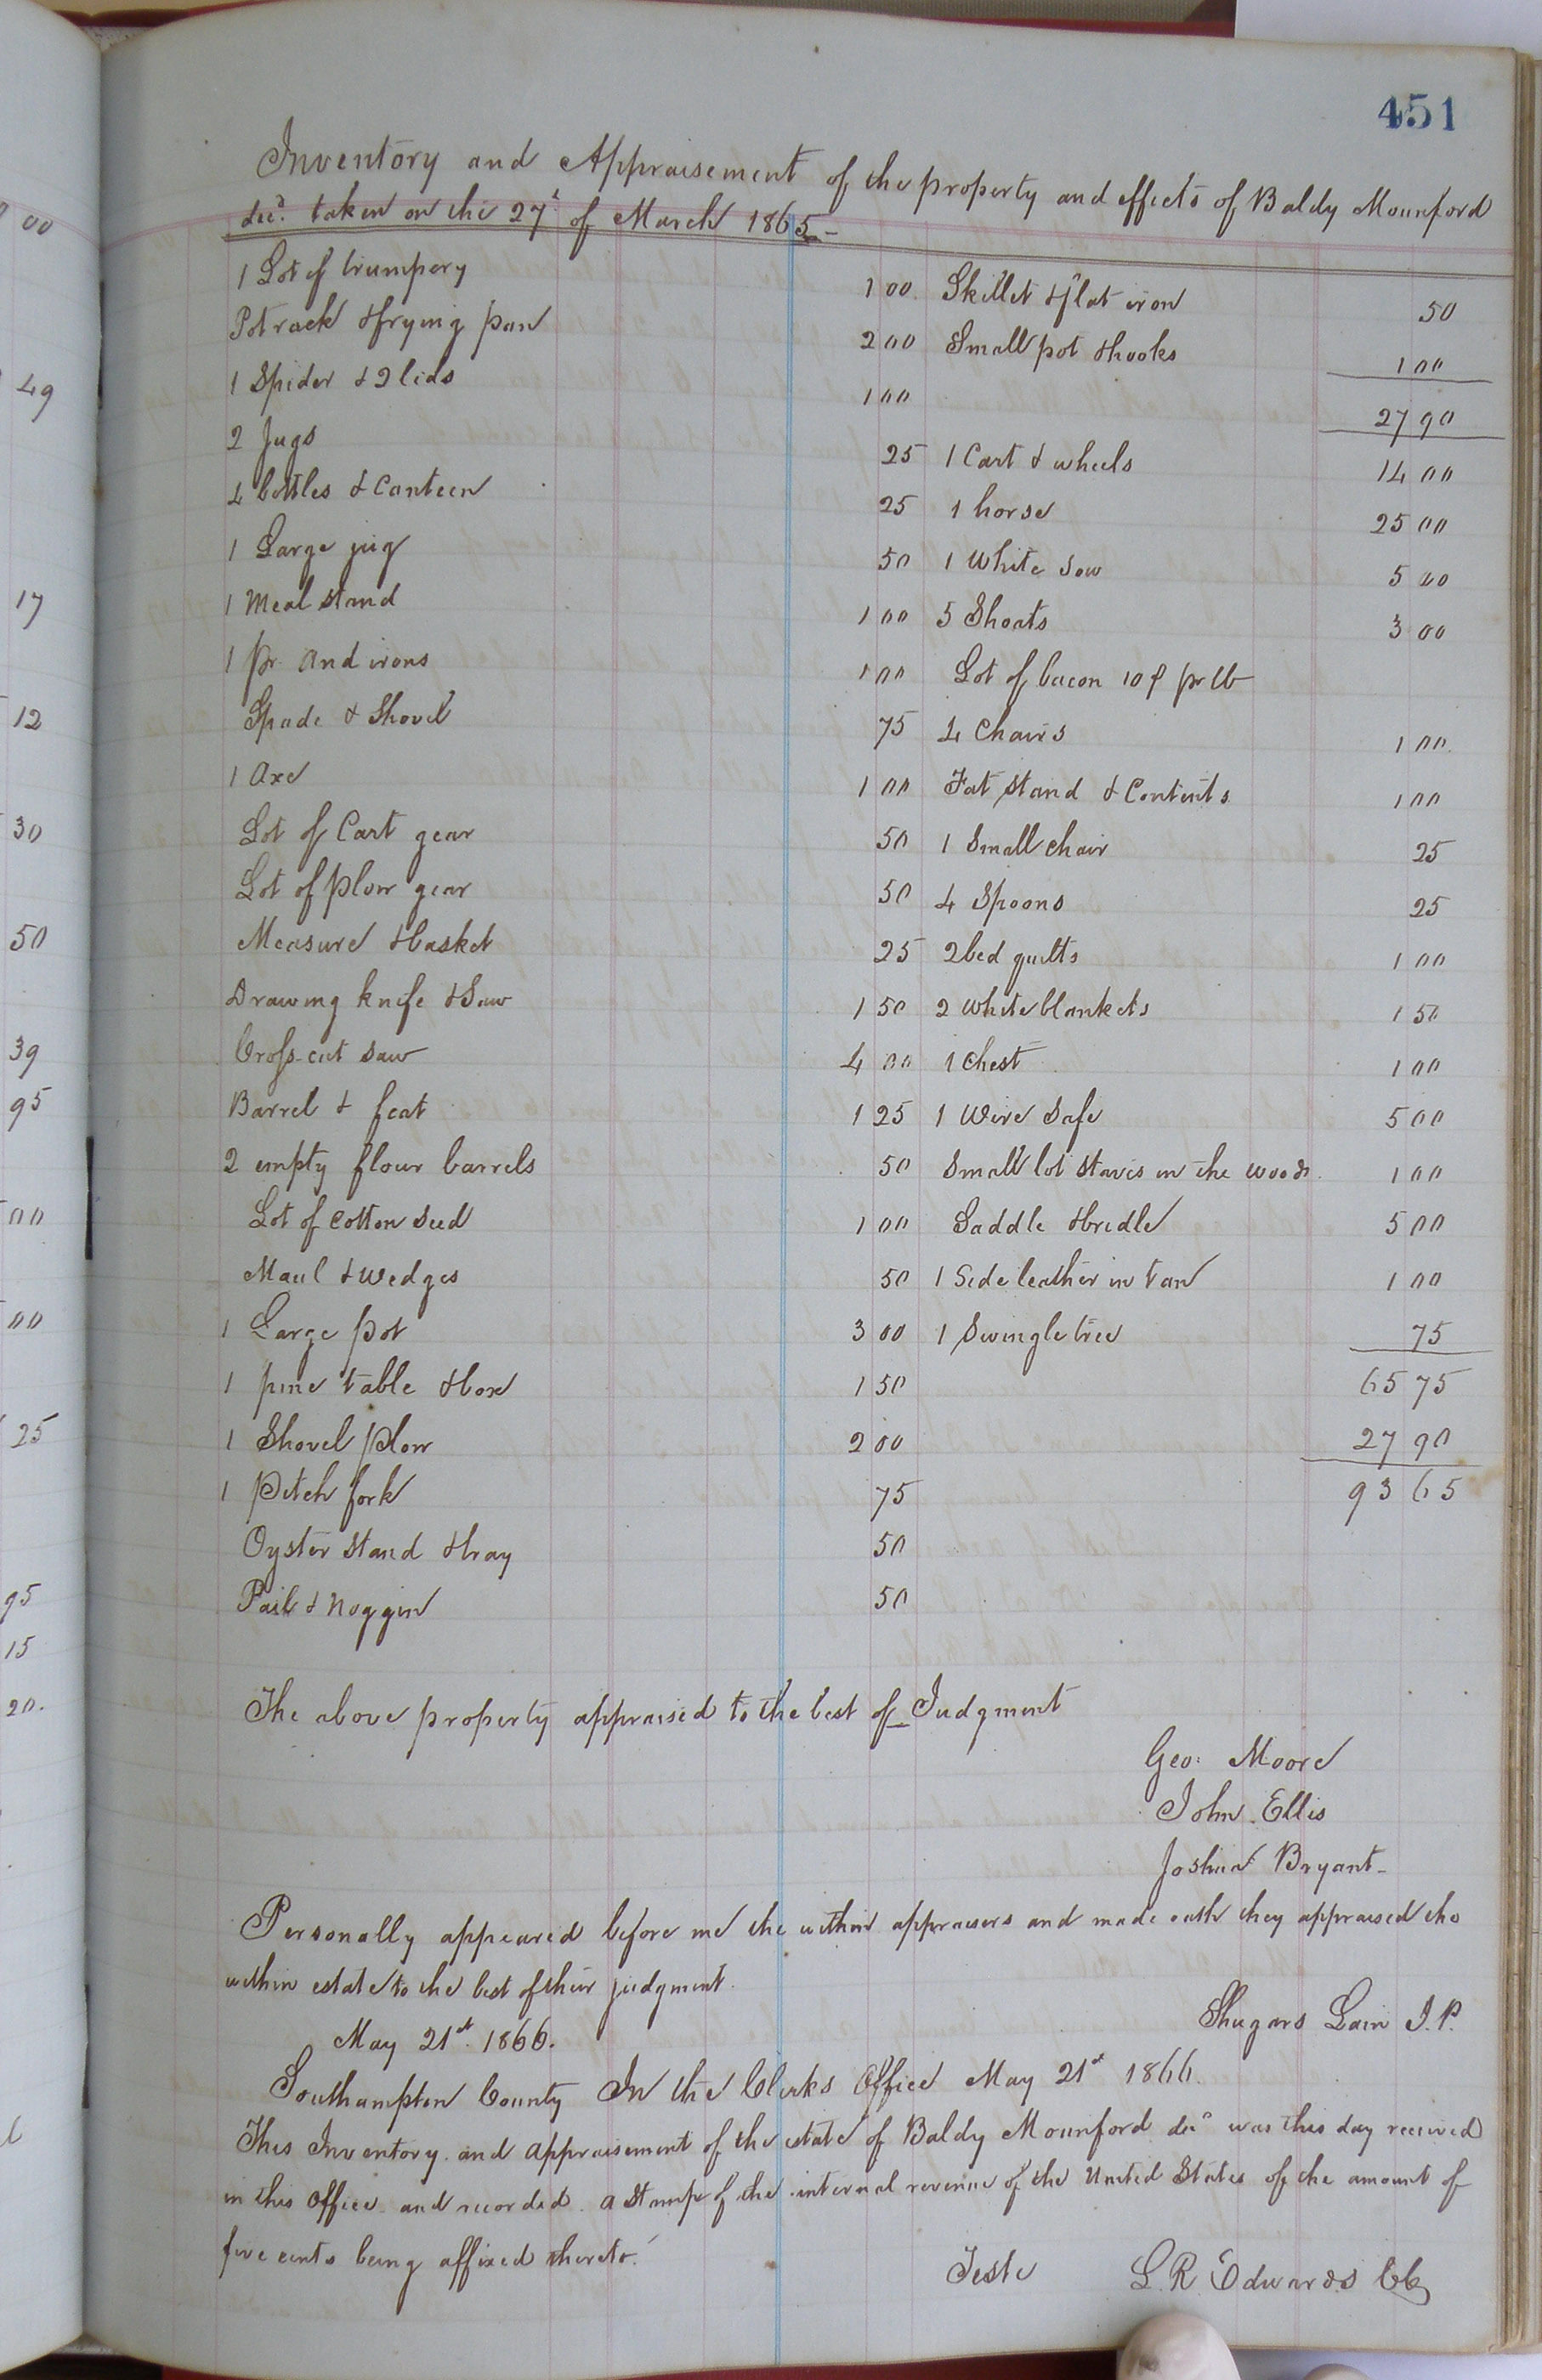 451
Inventory and Appraisement of the property and effects of Baldy Mounford
decd. taken on the 27t of March 1865 -
1 Lot of trumpery 1 00
Potrack & frying pan 2 00
1 Spider & 2 lids 1 00
2 Jugs 25
4 bottles & Canteen 25
1 Large jug 50
1 Meal stand 1 00
1 pr. And irons 1 00
Spade & Shovel 75
1 Axe 1 00
Lot of Cart gear 50
Lot of plow gear 50
Measure & basket 25
Drawing knife & Saw 1 50
Cross-cut saw 4 00
Barrel & feat 1 25
2 empty flour barrels 50
Lot of cotton seed 1 00
Maul & wedges 50
1 Large pot 3 00
1 pine table & box 1 50
1 Shovel plow 2 00
1 Pitch fork 75
Oyster stand & tray 50
Pail & Noggin 50
Skillet & flat iron 50
Small pot & hooks 1 00
27 90
1 Cart & wheels 14 00
1 horse 25 00
1 White Sow 5 00
5 Shoats 3 00
Lot of bacon 10 ¢ pr lb
4 Chairs 1 00
Fat stand & Contents 1 00
1 Small chair 25
4 Spoons 25
2 bed quilts 1 00
2 white blankets 1 50
1 Chest 1 00
1 Wire Safe 5 00
Small lot staves in the woods 1 00
Saddle & bridle 5 00
1 Side leather in tan 1 00
1 Swingletree 75
65 75
27 90
93 65
The above property appraised to the best of Judgment
Geo: Moore
John. Ellis
Joshua Bryant-
Personally appeared before me the within appraisers and made oath they appraised the
within estate to the best of their judgment.
Shugars Lain J.P.
May 21st. 1866.
Southampton County In the Clerks Office May 21st 1866.
This Inventory and appraisement of the estate of Baldy Mounford decd was this day received
in this Office and recorded. a Stamp of the internal revenue of the United States of the amount of
five cents being affixed thereto.
Teste L. R. Edwards CC
00
49
17
12
30
50
39
95
00
00
25
95
15
20.